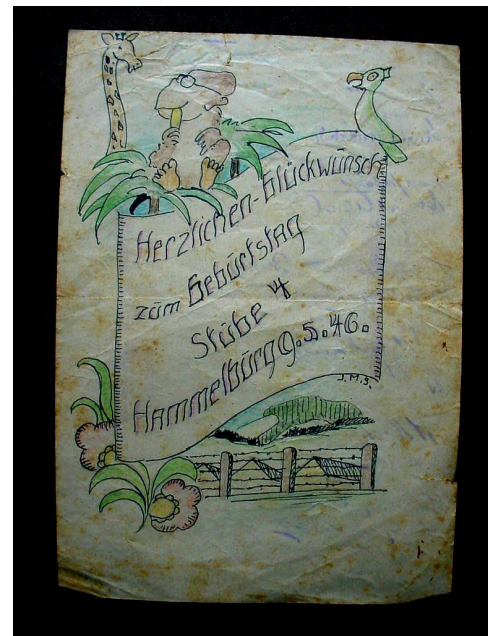 Herzlichen-Glückwünsch
züm Gebürtstag
Stübe 4
Hammelbürg 9.5.46.
J.M.S.